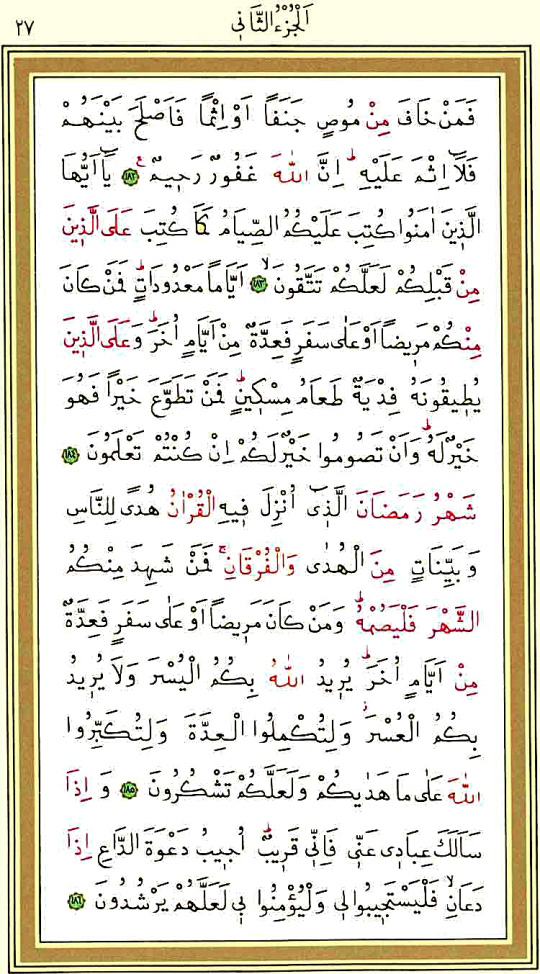 ٢٧ اَلْجُزْءُ الثَّانٖي
فَمَنْ خَافَ مِنْ مُوصٍ جَنَفًا اَوْ اِثْمًا فَاَصْلَحَ بَيْنَهُمْ
فَلَٓا اِثْمَ عَلَيْهِۜ اِنَّ اللّٰهَ غَفُورٌ رَحٖيمٌࣖ ﴿١٨٢﴾ يَٓا اَيُّهَا
الَّذٖينَ اٰمَنُوا كُتِبَ عَلَيْكُمُ الصِّيَامُ كَمَا كُتِبَ عَلَى الَّذٖينَ
مِنْ قَبْلِكُمْ لَعَلَّكُمْ تَتَّقُونَۙ ﴿١٨٣﴾ اَيَّامًا مَعْدُودَاتٍۜ فَمَنْ كَانَ
مِنْكُمْ مَرٖيضًا اَوْ عَلٰى سَفَرٍ فَعِدَّةٌ مِنْ اَيَّامٍ اُخَرَۜ وَعَلَى الَّذٖينَ
يُطٖيقُونَهُ فِدْيَةٌ طَعَامُ مِسْكٖينٍۜ فَمَنْ تَطَوَّعَ خَيْرًا فَهُوَ
خَيْرٌ لَهُۜ وَاَنْ تَصُومُوا خَيْرٌ لَكُمْ اِنْ كُنْتُمْ تَعْلَمُونَ ﴿١٨٤﴾
شَهْرُ رَمَضَانَ الَّذٖٓي اُنْزِلَ فٖيهِ الْقُرْاٰنُ هُدًى لِلنَّاسِ
وَبَيِّنَاتٍ مِنَ الْهُدٰى وَالْفُرْقَانِۚ فَمَنْ شَهِدَ مِنْكُمُ
الشَّهْرَ فَلْيَصُمْهُۜ وَمَنْ كَانَ مَرٖيضًا اَوْ عَلٰى سَفَرٍ فَعِدَّةٌ
مِنْ اَيَّامٍ اُخَرَۜ يُرٖيدُ اللّٰهُ بِكُمُ الْيُسْرَ وَلَا يُرٖيدُ
بِكُمُ الْعُسْرَۘ وَلِتُكْمِلُوا الْعِدَّةَ وَلِتُكَبِّرُوا
اللّٰهَ عَلٰى مَا هَدٰيكُمْ وَلَعَلَّكُمْ تَشْكُرُونَ ﴿١٨٥﴾ وَاِذَا
سَاَلَكَ عِبَادٖي عَنّٖي فَاِنّٖي قَرٖيبٌۜ اُجٖيبُ دَعْوَةَ الدَّاعِ اِذَا
دَعَانِۙ فَلْيَسْتَجٖيبُوا لٖي وَلْيُؤْمِنُوا بٖي لَعَلَّهُمْ يَرْشُدُونَ ﴿١٨٦﴾